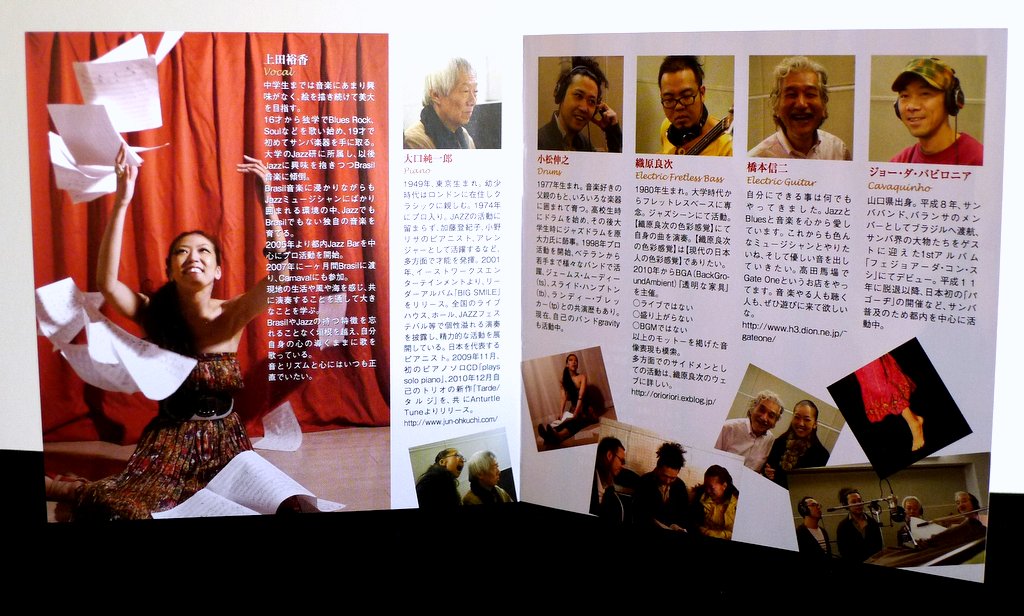 上田裕香
Vocal
中学生までは音楽にあまり興
味がなく、絵を描き続けて美大
を目指す。
16才から独学でBlues Rock,
Soulなどを歌い始め、19才で
初めてサンバ楽器を手に取る。
大学のJazz研に所属し、以後
Jazzに興味を抱きつつBrasil
音楽に傾倒。
Brasil音楽に浸かりながらも
Jazzミュージシャンにばかり
囲まれる環境の中、Jazzでも
Brasilでもない独自の音楽を
育てる。
2005年より都内Jazz Barを中
心にプロ活動を開始。
2007年に一ヶ月間Brasilに渡
り、Carnavalにも参加。
現地の生活や風や海を感じ、共
に演奏することを通して大き
なことを学ぶ。
BrasilやJazzの持つ特徴を忘
れることなく垣根を越え、自分
自身の心の導くままに歌を
歌っている。
音とリズムと心にはいつも正
直でいたい。
大口純一郎
Piano
1949年、東京生まれ。幼少
時代はロンドンに在住しク
ラシックに親しむ。1974年
にプロ入り。JAZZの活動に
留まらず、加藤登紀子、小野
リサのピアニスト、アレン
ジャーとして活躍するなど、
多方面で才能を発揮。2001
年、イーストワークスエン
ターテインメントより、リー
ダーアルバム「BIG SMILE」
をリリース。全国のライブ
ハウス、ホール、JAZZフェス
ティバル等で個性溢れる演奏
を披露し、精力的な活動を展
開している。日本を代表する
ピアニスト。2009年11月、
初のピアノソロCD「plays
solo piano」、2010年12月自
己のトリオの新作「Tarde/
タルジ」を、共にAnturtle
Tuneよりリリース。
http://www.jun-ohkuchi.com/
小松伸之
Drums
1977年生まれ。音楽好きの
父親のもと、いろいろな楽器
に囲まれて育つ。高校生時
にドラムを始め、その後大
学生時にジャズドラムを原
大力氏に師事。1998年プロ
活動を開始、ベテランから
若手まで様々なバンドで活
躍。ジェームス・ムーディー
(ts)、スライド・ハンプトン
(tb)、ランディー・ブレッ
カー(tp)との共演歴もあり。
現在、自己のバンドgravity
も活動中。
織原良次
Electric Fretless Bass
1980年生まれ。大学時代か
らフレットレスベースに専
念。ジャズシーンにて活動。
【織原良次の色彩感覚】にて
自身の曲を演奏。【織原良次
の色彩感覚】は【現代の日本
人の色彩感覚】でありたい。
2010年からBGA(BackGro-
undAmbient)「透明な家具」
を主催。
○ライブではない
○盛り上がらない
○BGMではない
以上のモットーを掲げた音
像表現も模索。
多方面でのサイドメンとし
ての活動は、織原良次のウェ
ブに詳しい。
http://orioriori.exblog.jp/
橋本信二
Electric Guitar
自分にできる事は何でも
やってきました。Jazzと
Bluesと音楽を心から愛し
ています。これからも色ん
なミュージシャンとやりた
いね、そして優しい音を出し
ていきたい。高田馬場で
Gate Oneというお店をやっ
てます。音楽やる人も聴く
人も、ぜひ遊びに来て欲しい
な。
http://www.h3.dion.ne.jp/~
gateone/
ジョー・ダ・バビロニア
Cavaquinho
山口県出身。平成8年、サン
ババンド、バランサのメン
バーとしてブラジルへ渡航、
サンバ界の大物たちをゲス
トに迎えた1stアルバム
「フェジョアーダ・コン・ス
シ」にてデビュー。平成11
年に脱退以降、日本初の「パ
ゴーチ」の開催など、サンバ
普及のため都内を中心に活
動中。